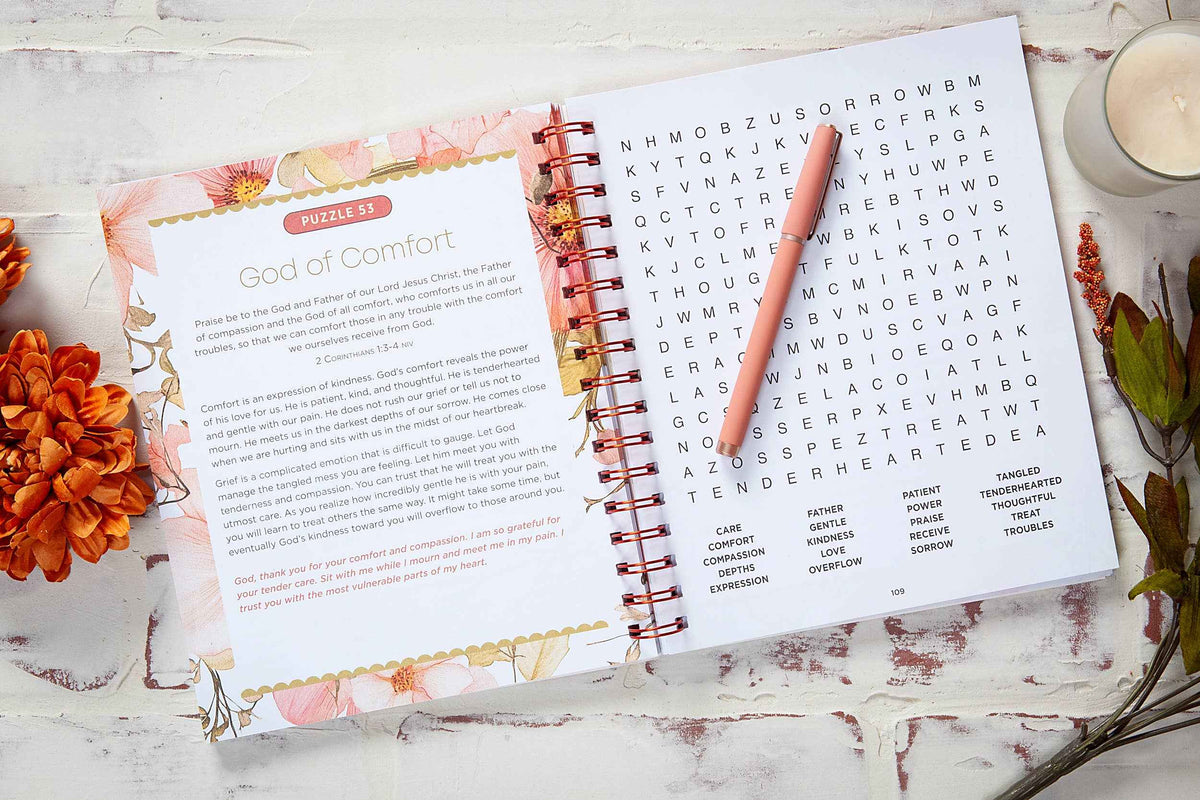 PUZZLE 53
God of Comfort
Praise be to the God and Father of our Lord Jesus Christ, the Father
of compassion and the God of all comfort, who comforts us in all our
troubles, so that we can comfort those in any trouble with the comfort
we ourselves receive from God.
2 CORINTHIANS 1:3-4 NIV
Comfort is an expression of kindness. God's comfort reveals the power
of his love for us. He is patient, kind, and thoughtful. He is tenderhearted
and gentle with our pain. He does not rush our grief or tell us not to
mourn. He meets us in the darkest depths of our sorrow. He comes close
when we are hurting and sits with us in the midst of our heartbreak.
Grief is a complicated emotion that is difficult to gauge. Let God
manage the tangled mess you are feeling. Let him meet you with
tenderness and compassion. You can trust that he will treat you with the
utmost care. As you realize how incredibly gentle he is with your pain,
you will learn to treat others the same way. It might take some time, but
eventually God's kindness toward you will overflow to those around you.
God, thank you for your comfort and compassion. I am so grateful for
your tender care. Sit with me while I mourn and meet me in my pain. I
trust you with the most vulnerable parts of my heart.
N H M O B Z U S O R R O W B M
K Y T Q K J K V E C F R K S
S F V N A Z E Y S L P G A
Q C T C T R E N Y H U W P E
K V T O F R M R E B T H W D
K J C L M E W B K I S O V S
T H O U G T F U L K T O T K
J W M R Y M C M I R V A A I
D E P T S B V N O E B W P N
E R A M W D U S C V A G F
L A S W J N B I O E Q O A K
G C Q Z E L A C O I A T L L
N O S S E R P X E V H M B Q
A Z O S S P E Z T R E A T W T
T E N D E R H E A R T E D E A
CARE
COMFORT
COMPASSION
DEPTHS
EXPRESSION
FATHER
GENTLE
KINDNESS
LOVE
OVERFLOW
PATIENT
POWER
PRAISE
RECEIVE
SORROW
TANGLED
TENDERHEARTED
THOUGHTFUL
TREAT
TROUBLES
109